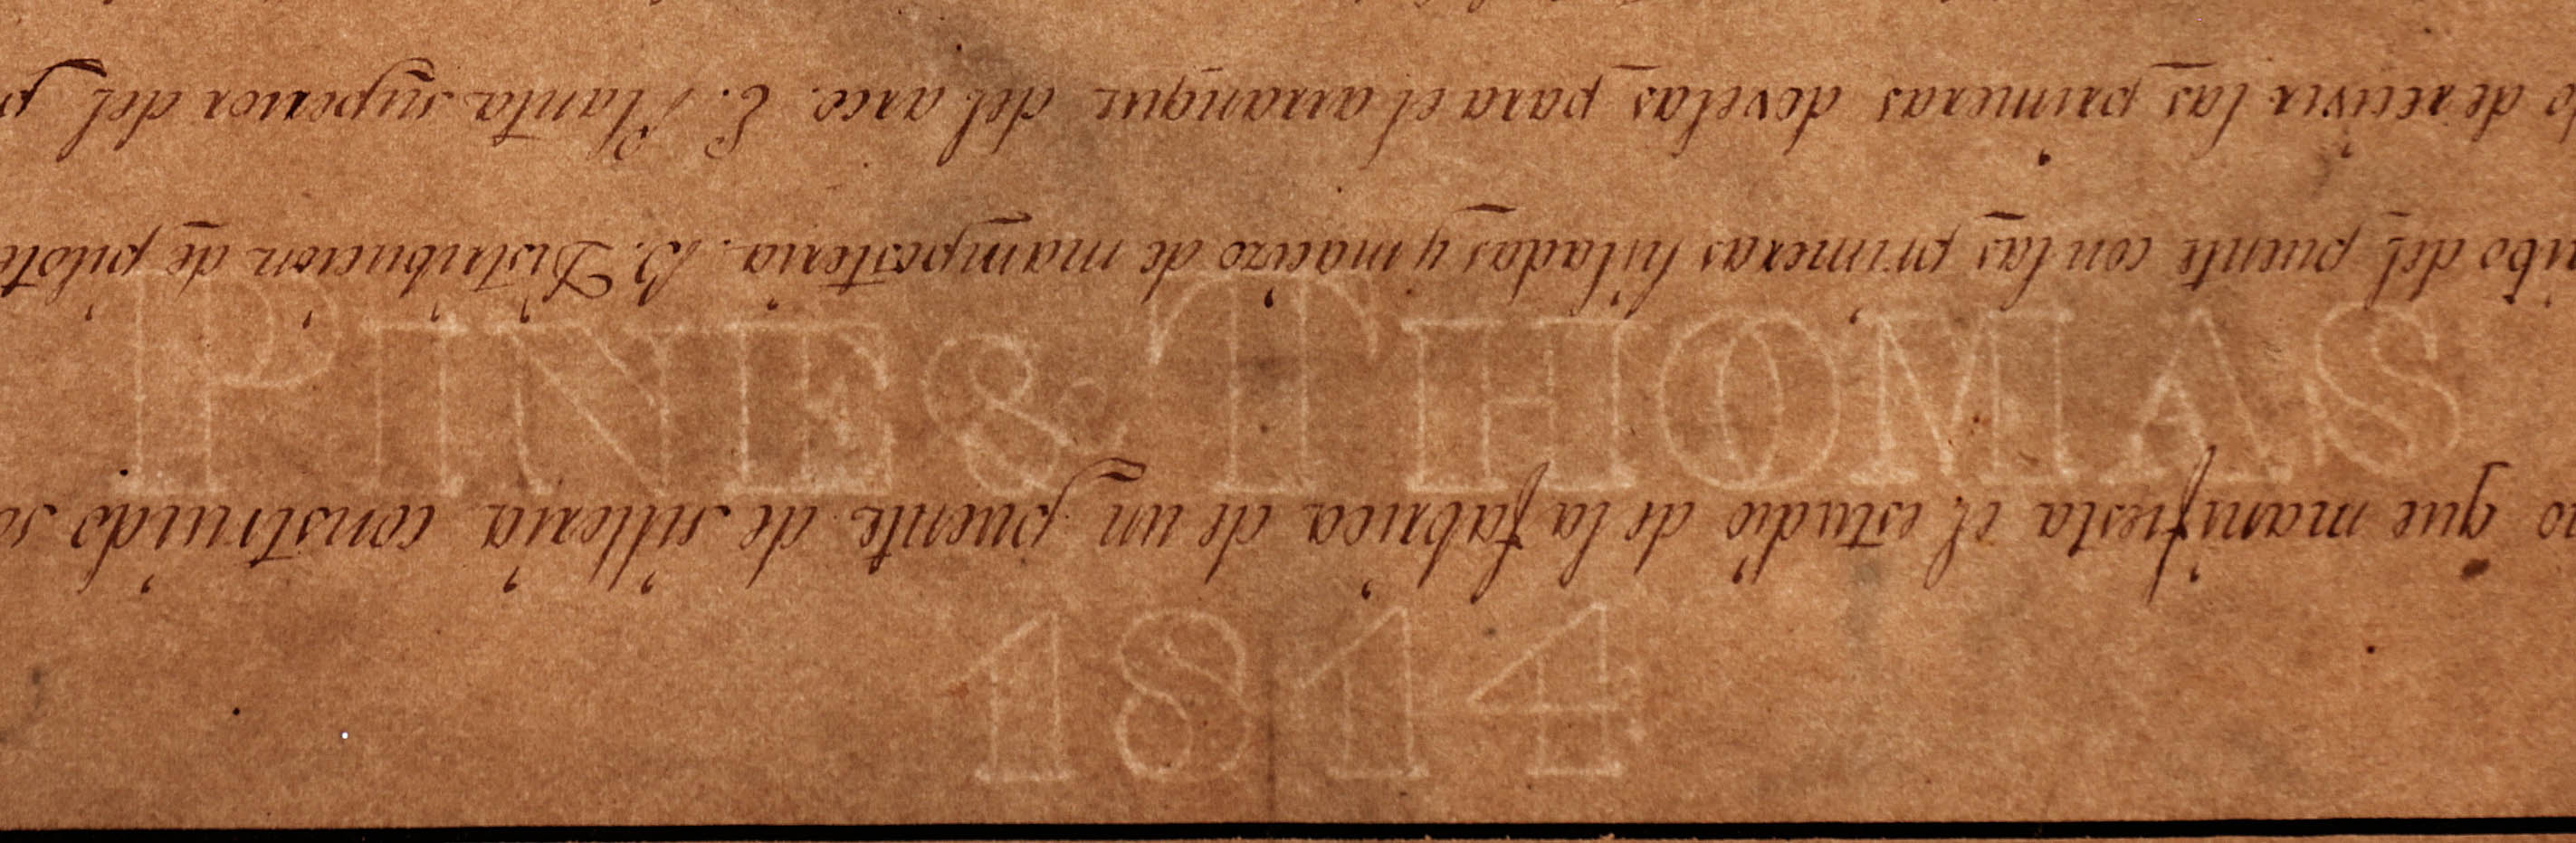 PINE & THOMAS
1814
que manifiesta el estudio de la fabrica de un puente de silleria construido so
ubo del puente con las primeras hiladas y macizo de mamposteria. B. Distribucion de pilote
de recivir las primeras dovelas para el arranque del arco. E. Planta superior del p